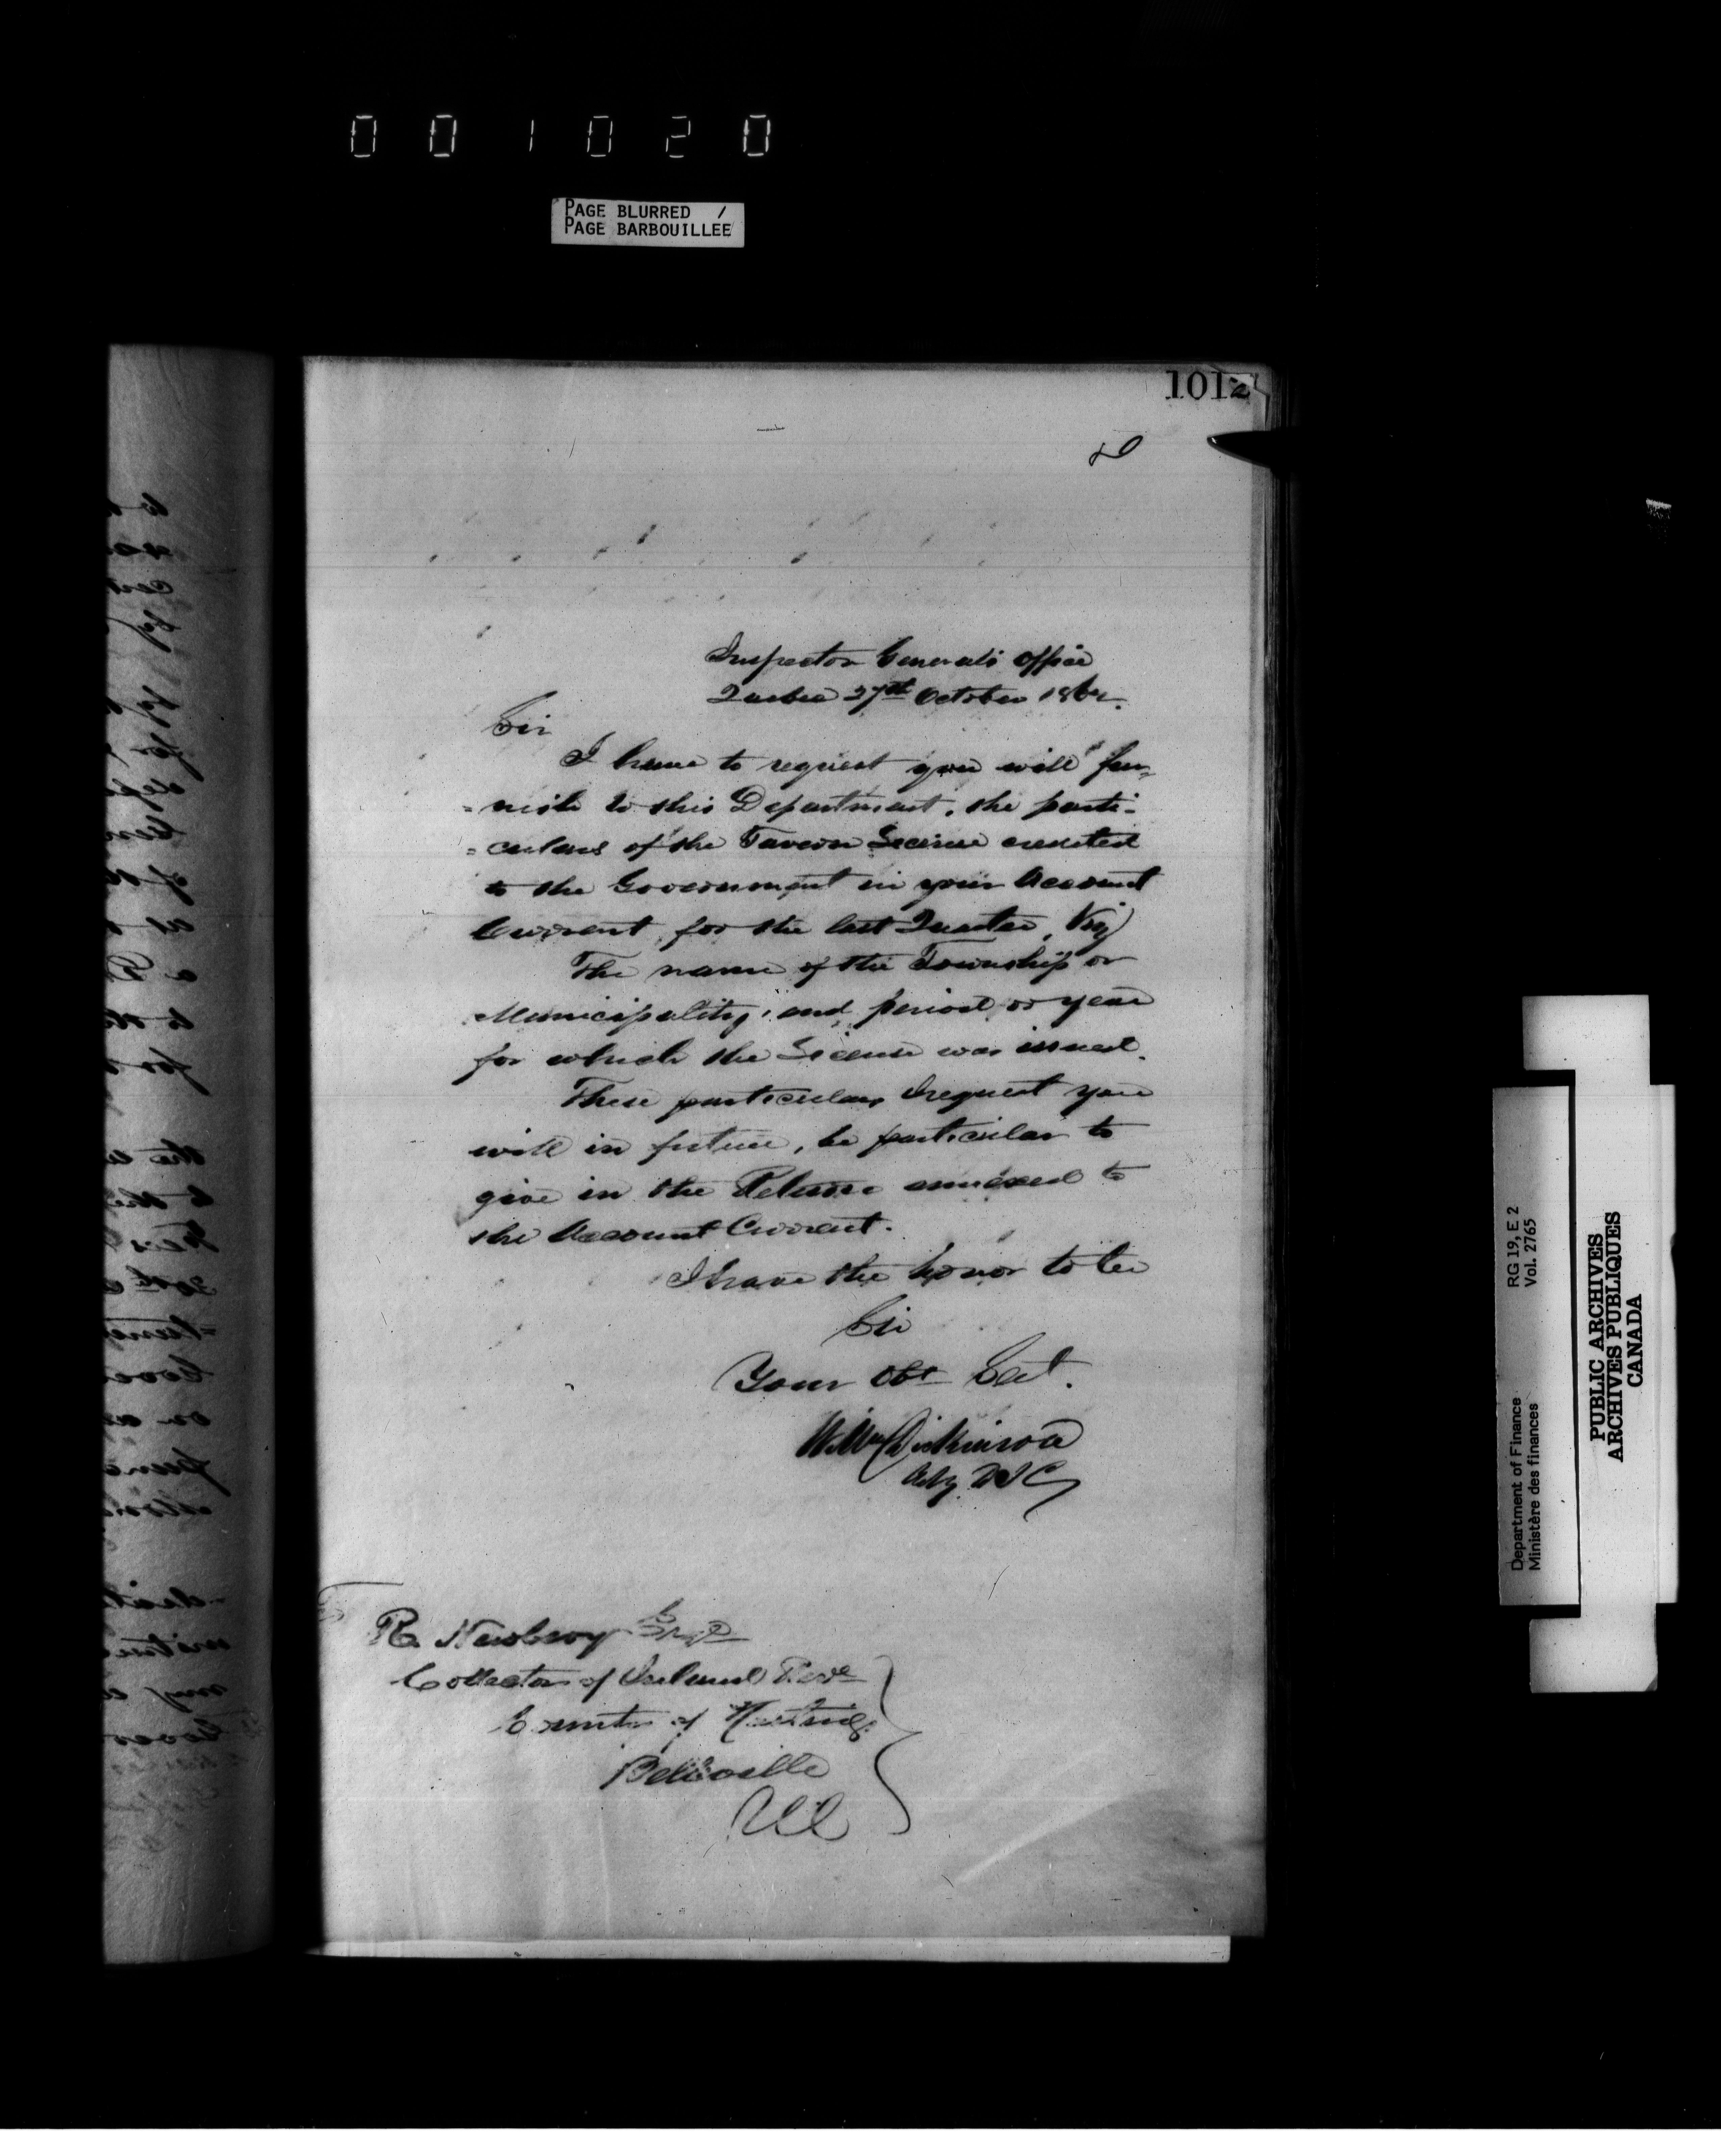 001020
PAGE BLURRED /
PAGE BARBOUILLÉE
1012
Inspector General's Office
Quebec 27th October 186
Sir
I have to request you will fur,
= nish to this Department, the parti-
= culars of the Tavern License credited
to the Government in your Account
Current for the last Quarter, Viz)
The name of the Township or
Municipality, and period or year
for which the License was issued.
These particulars I request you
will in future, be particular to
give in the Return annexed to
the Account Current.
I have the honor to be
Sir
Your Obt Sert.
Wm Dickinson
Actg D I G
R. Newbery Esqr
Collector of Inland Reve
County of Hastings
Belleville
UC
RG 19, E 2
Vol. 2765
Department of Finance
Ministère des finances
PUBLIC ARCHIVES
ARCHIVES PUBLIQUES
CANADA